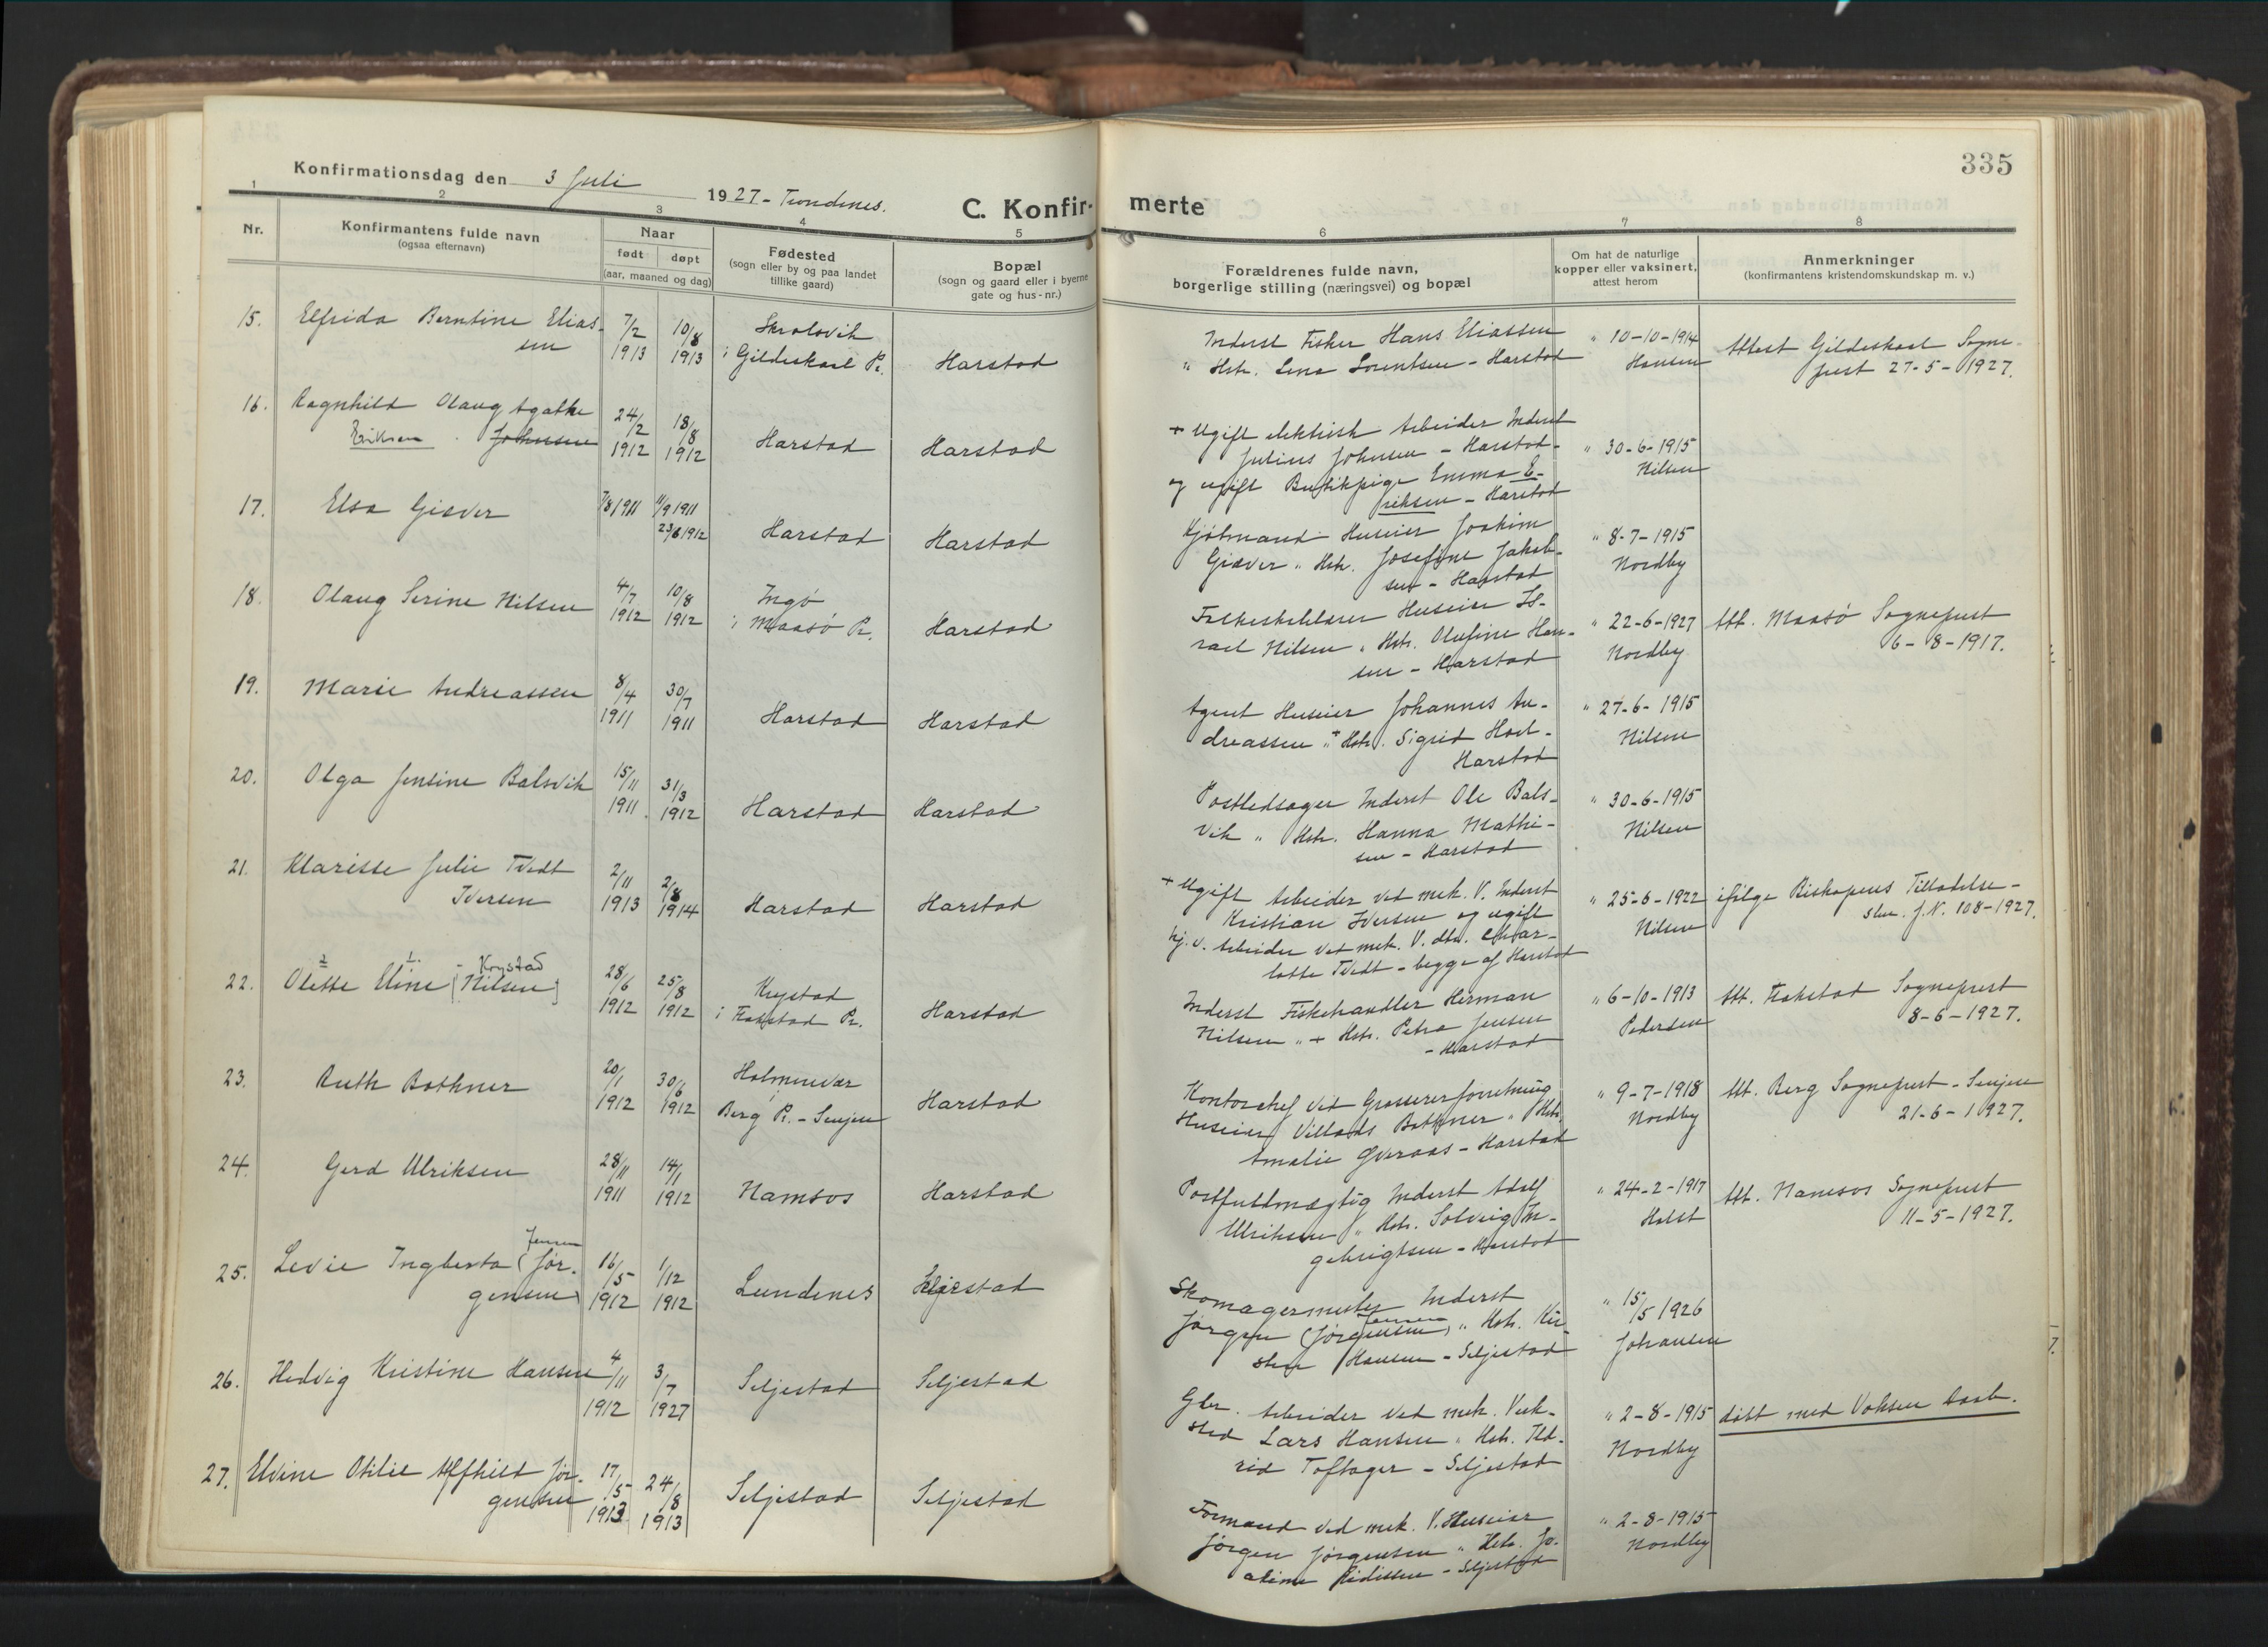 335
Konfirmationsdag den 3 Juli 1927 - Trondenes.
C. Konfirmerte
1 2 3 4 5 6 7 8
Nr.
Konfirmantens fulde navn
(ogsaa efternavn)
Naar
født døpt
(aar, maaned og dag)
Fødested
(sogn eller by og paa landet
tillike gaard)
Bopæl
(sogn og gaard eller i byerne
gate og hus-nr.)
Forældrenes fulde navn,
borgerlige stilling (næringsvei) og bopæl
Om hat de naturlige
kopper eller vaksinert,
attest herom
Anmerkninger
(konfirmantens kristendomskundskap m. v.)
15. Elfrida Berntine Elias-
sen
7/2 1913
10/8 1913
i Gildeskaal P.
Harstad
Inderst Fisker Hans Eliassen
" Hstr. Lena Lorentsen - Harstad
" 10-10-1914
Hansen
Attest Gildeskaal Sogne-
prest 27-5-1927.
16. Ragnhild Olaug Agathe
Eriksen Johnsen
24/2 1912
18/8 1912
Harstad
Harstad
+ Ugift elektrisk Arbeider Inderst
Julius Johnsen - Harstad -
og ugift Butikpige Emma E-
riksen - Harstad
" 30-6-1915
Nilsen
17. Elsa Giæver
7/8 1911
11/9 1911
23/6 1912
Harstad
Harstad
Kjøbmand Huseier Joakim
Giæver " Hstr. Josefine Jakob-
sen - Harstad
" 8-7-1915
Nordby
18. Olaug Serine Nilsen
4/7 1912
10/8 1912
Ingø
i Maasø P.
Harstad
Huseier Is-
rael Nilsen " Hstr. Olufine Han-
sen - Harstad
" 22-6-1927
Nordby
Att. Maasø Sogneprest
6-8-1917.
19. Marie Andreassen
8/4 1911
30/7 1911
Harstad
Harstad
Agent Huseier Johannes An-
dreassen "+ Hstr. Sigrid Hoel -
Harstad
" 27-6-1915
Nilsen
20. Olga Jensine Balsvik
15/11 1911
31/3 1912
Harstad
Harstad
Postledsager Inderst Ole Bals-
vik " Hstr. Hanna Mathi-
sen - Harstad
" 30-6-1915
Nilsen
21. Klarisse Julie Tvedt
Iversen
2/11 1913
2/8 1914
Harstad
Harstad
+ Ugift Arbeider ved mek. V. Inderst
Kristian Iversen og ugift
Arbeider ved mek. V. dtr. Char-
lotte Tvedt - begge af Harstad
" 25-6-1922
Nilsen
ifølge Biskopens Tilladelse -
J.N. 108-1927.
22. Olette Eline [Nilsen] - Krystad
2 1
28/6 1912
25/8 1912
Krystad
i Flakstad P.
Harstad
Inderst Fiskehandler Herman
Nilsen "+ Hstr. Petra Jensen
- Harstad
" 6-10-1913
Pedersen
Att. Flakstad Sogneprest
8-6-1927.
23. Ruth Bothner
20/1 1912
30/6 1912
Holmenvær
i
Berg P. - Senjen
Harstad
Kontorchef ved Grossererforretning
Huseier Villads Bothner " Hstr.
Amalie Overaas - Harstad
" 9-7-1918
Nordby
Att. Berg Sogneprest - Senjen
21-6-1927.
24. Gerd Ulriksen
28/11 1911
14/1 1912
Namsos
Harstad
Postfuldmægtig Inderst Adolf
Ulriksen " Hstr. Solveig In-
gebrigtsen - Harstad
" 24-2-1917
Holst
Att. Namsos Sogneprest
11-5-1927.
25. Levie Ingberta (Jør-
gensen) Jensen
16/5 1912
1/12 1912
Lundenes
Seljestad
Skomagermester Inderst
Jørgen (Jørgensen) Jensen " Hstr. Kir-
sten Hansen - Seljestad
" 15/5 1926
Johansen
26. Hedvig Kristine Hansen
4/11 1912
3/7 1927
Seljestad
Seljestad
Gbr. Arbeider ved mek. Verk-
sted Lars Hansen " Hstr. Ild-
rid Toftager - Seljestad
" 2-8-1915
Nordby
døbt med Voksen Daab.
27. Elvine Otilie Alfhild Jør-
gensen
17/5 1913
24/8 1913
Seljestad
Seljestad
Formand ved mek. V. Huseier
Jørgen Jørgensen " Hstr. Jo-
- Seljestad
" 2-8-1915
Nordby